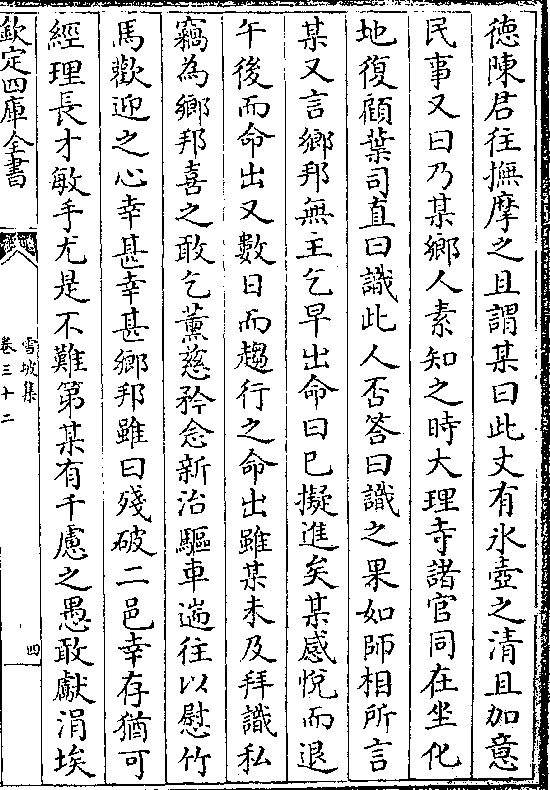 徳陳君往撫摩之且謂某曰此丈有氷壺之清且加意
民事又曰乃某鄉人素知之時大理寺諸官同在坐化
地復顧葉司直曰識此人否答曰識之果如師相所言
某又言鄉邦無主乞早出命曰已擬進矣某感悦而退
午後而命出又數日而趨行之命出雖某未及拜識私
竊為鄉邦喜之敢乞薰慈矜念新治驅車遄往以慰竹
馬歡迎之心幸甚幸甚鄉邦雖曰殘破二邑幸存猶可
經理長才敏手尤是不難第某有千慮之愚敢獻涓埃
欽定四庫全書
雪坡集
卷三十二
四